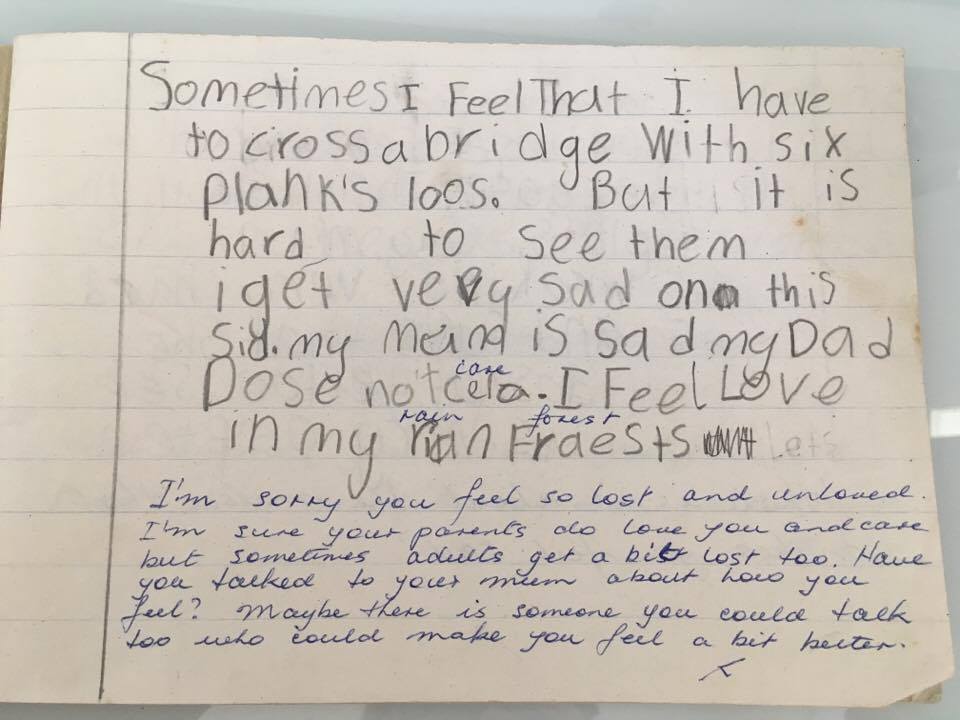 Sometimes I Feel That I have
to cross a bridge with six
plank's loos. But it is
hard to see them
i get very sad on this
sid. my mend is sad my Dad
Dose not cela. I Feel Love
care
in my rian Fraests
rain forest
I'm sorry you feel so lost and unloved.
I'm sure your parents do love you and care
but sometimes adults get a bit lost too. Have
you talked to your mum about how you
feel? Maybe there is someone you could talk
too who could make you feel a bit better.